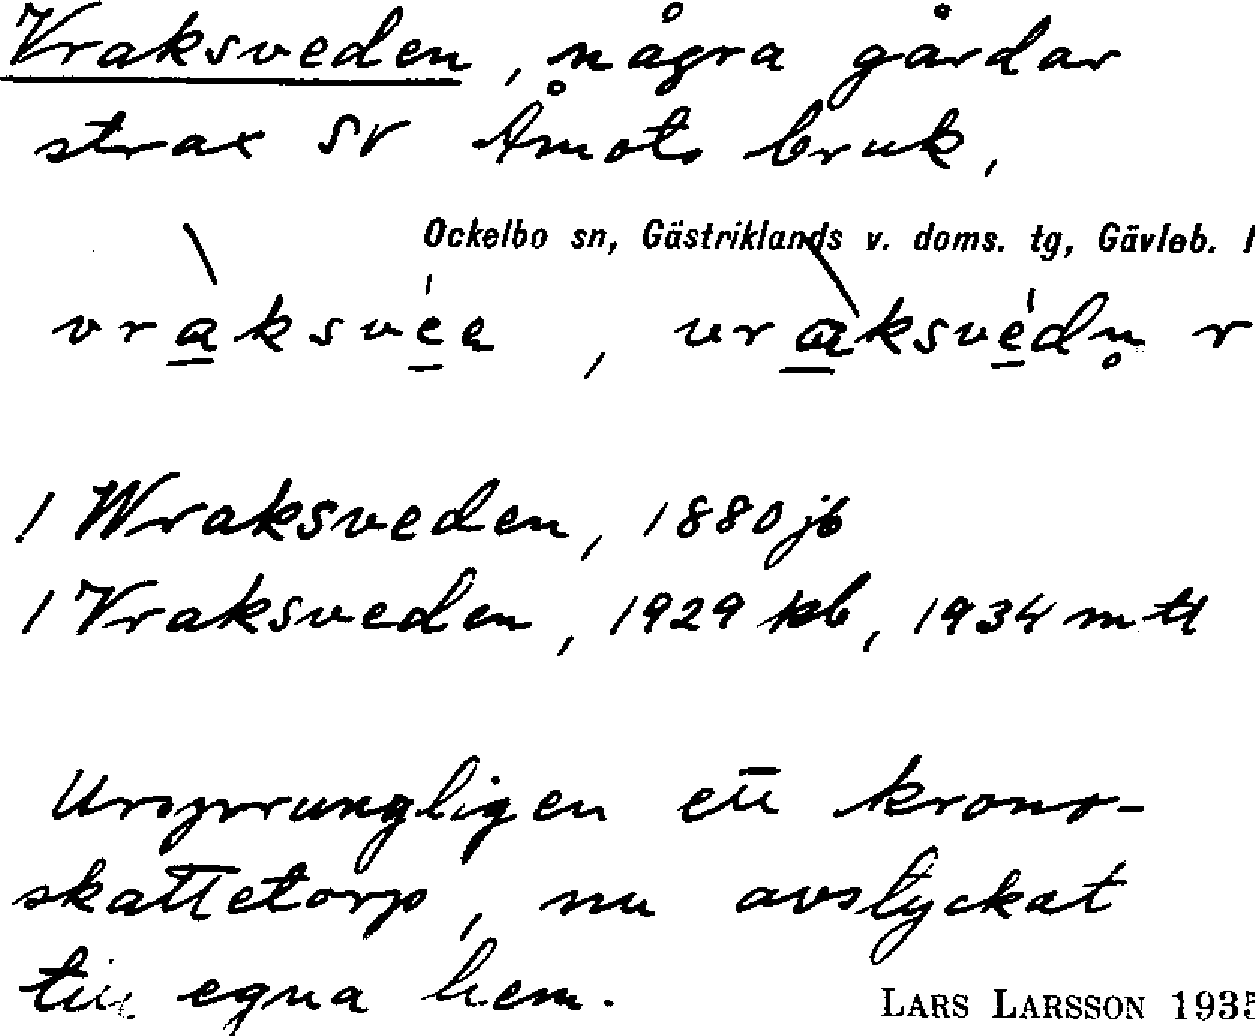 Vraksveden, några gårdar
strax SV Åmots bruk,
Ockelbo sn, Gästriklands v. doms. tg, Gävleb. l
vraksvéa, vraksvédn̥ r
1 Wraksveden, 1880 jb
1 Vraksveden, 1929 kb, 1934 mtl
Ursprungligen ett krono-
skattetorp, nu avstyckat
till egna hem.
LARS LARSSON 1935